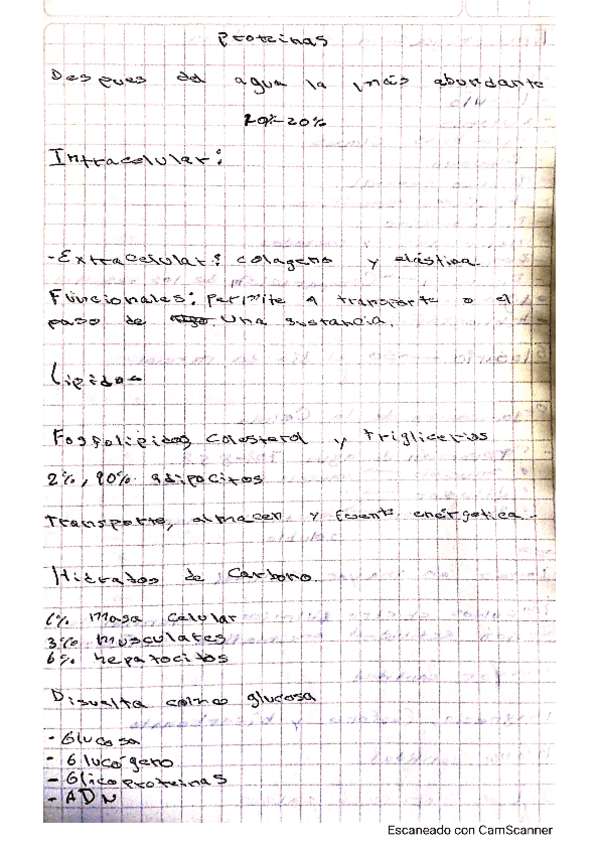 proteinas
Despues del agua la más abundante
20%-20%
Intracelular:
-Extracelular: colageno y elástica
Funcionales: permite a transporte o el
paso de una sustancia.
Lipidos
Fosfolipidos, colesterol y trigliceridos
2%, 90% adipocitos
Transporte, almacen y fuente energetica.
Hidratos de carbono.
1% Masa celular
3% musculares
6% hepatocitos
Disuelta como glucosa
- Glucosa
- Glucógeno
- Glicoproteinas
- ADN
Escaneado con CamScanner